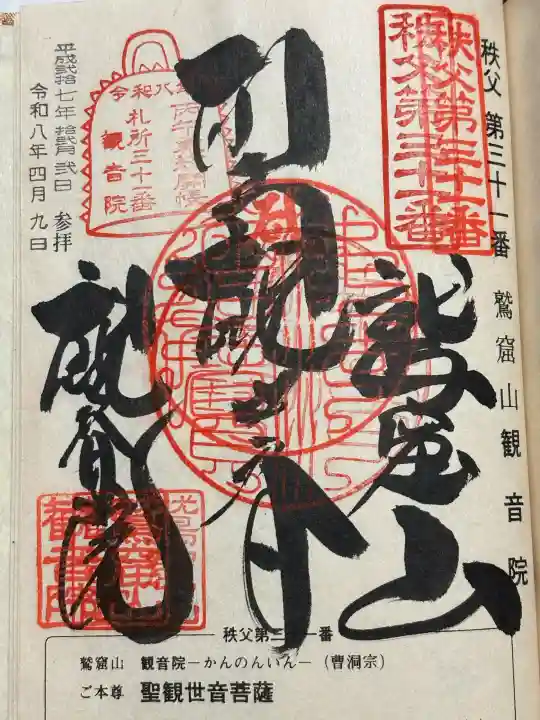 秩父 第三十一番 鷲窟山観音院
秩父第三十一番
秩父第三十一番
鷲窟山
聖観世音
観音院
令和八年
丙午歳総開帳
札所三十一番
観音院
平成弐拾七年 拾弐月 弐日 参拝
令和八年四月九日
秩父第三十一番
鷲窟山 観音院―かんのんいん―(曹洞宗)
ご本尊 聖観世音菩薩